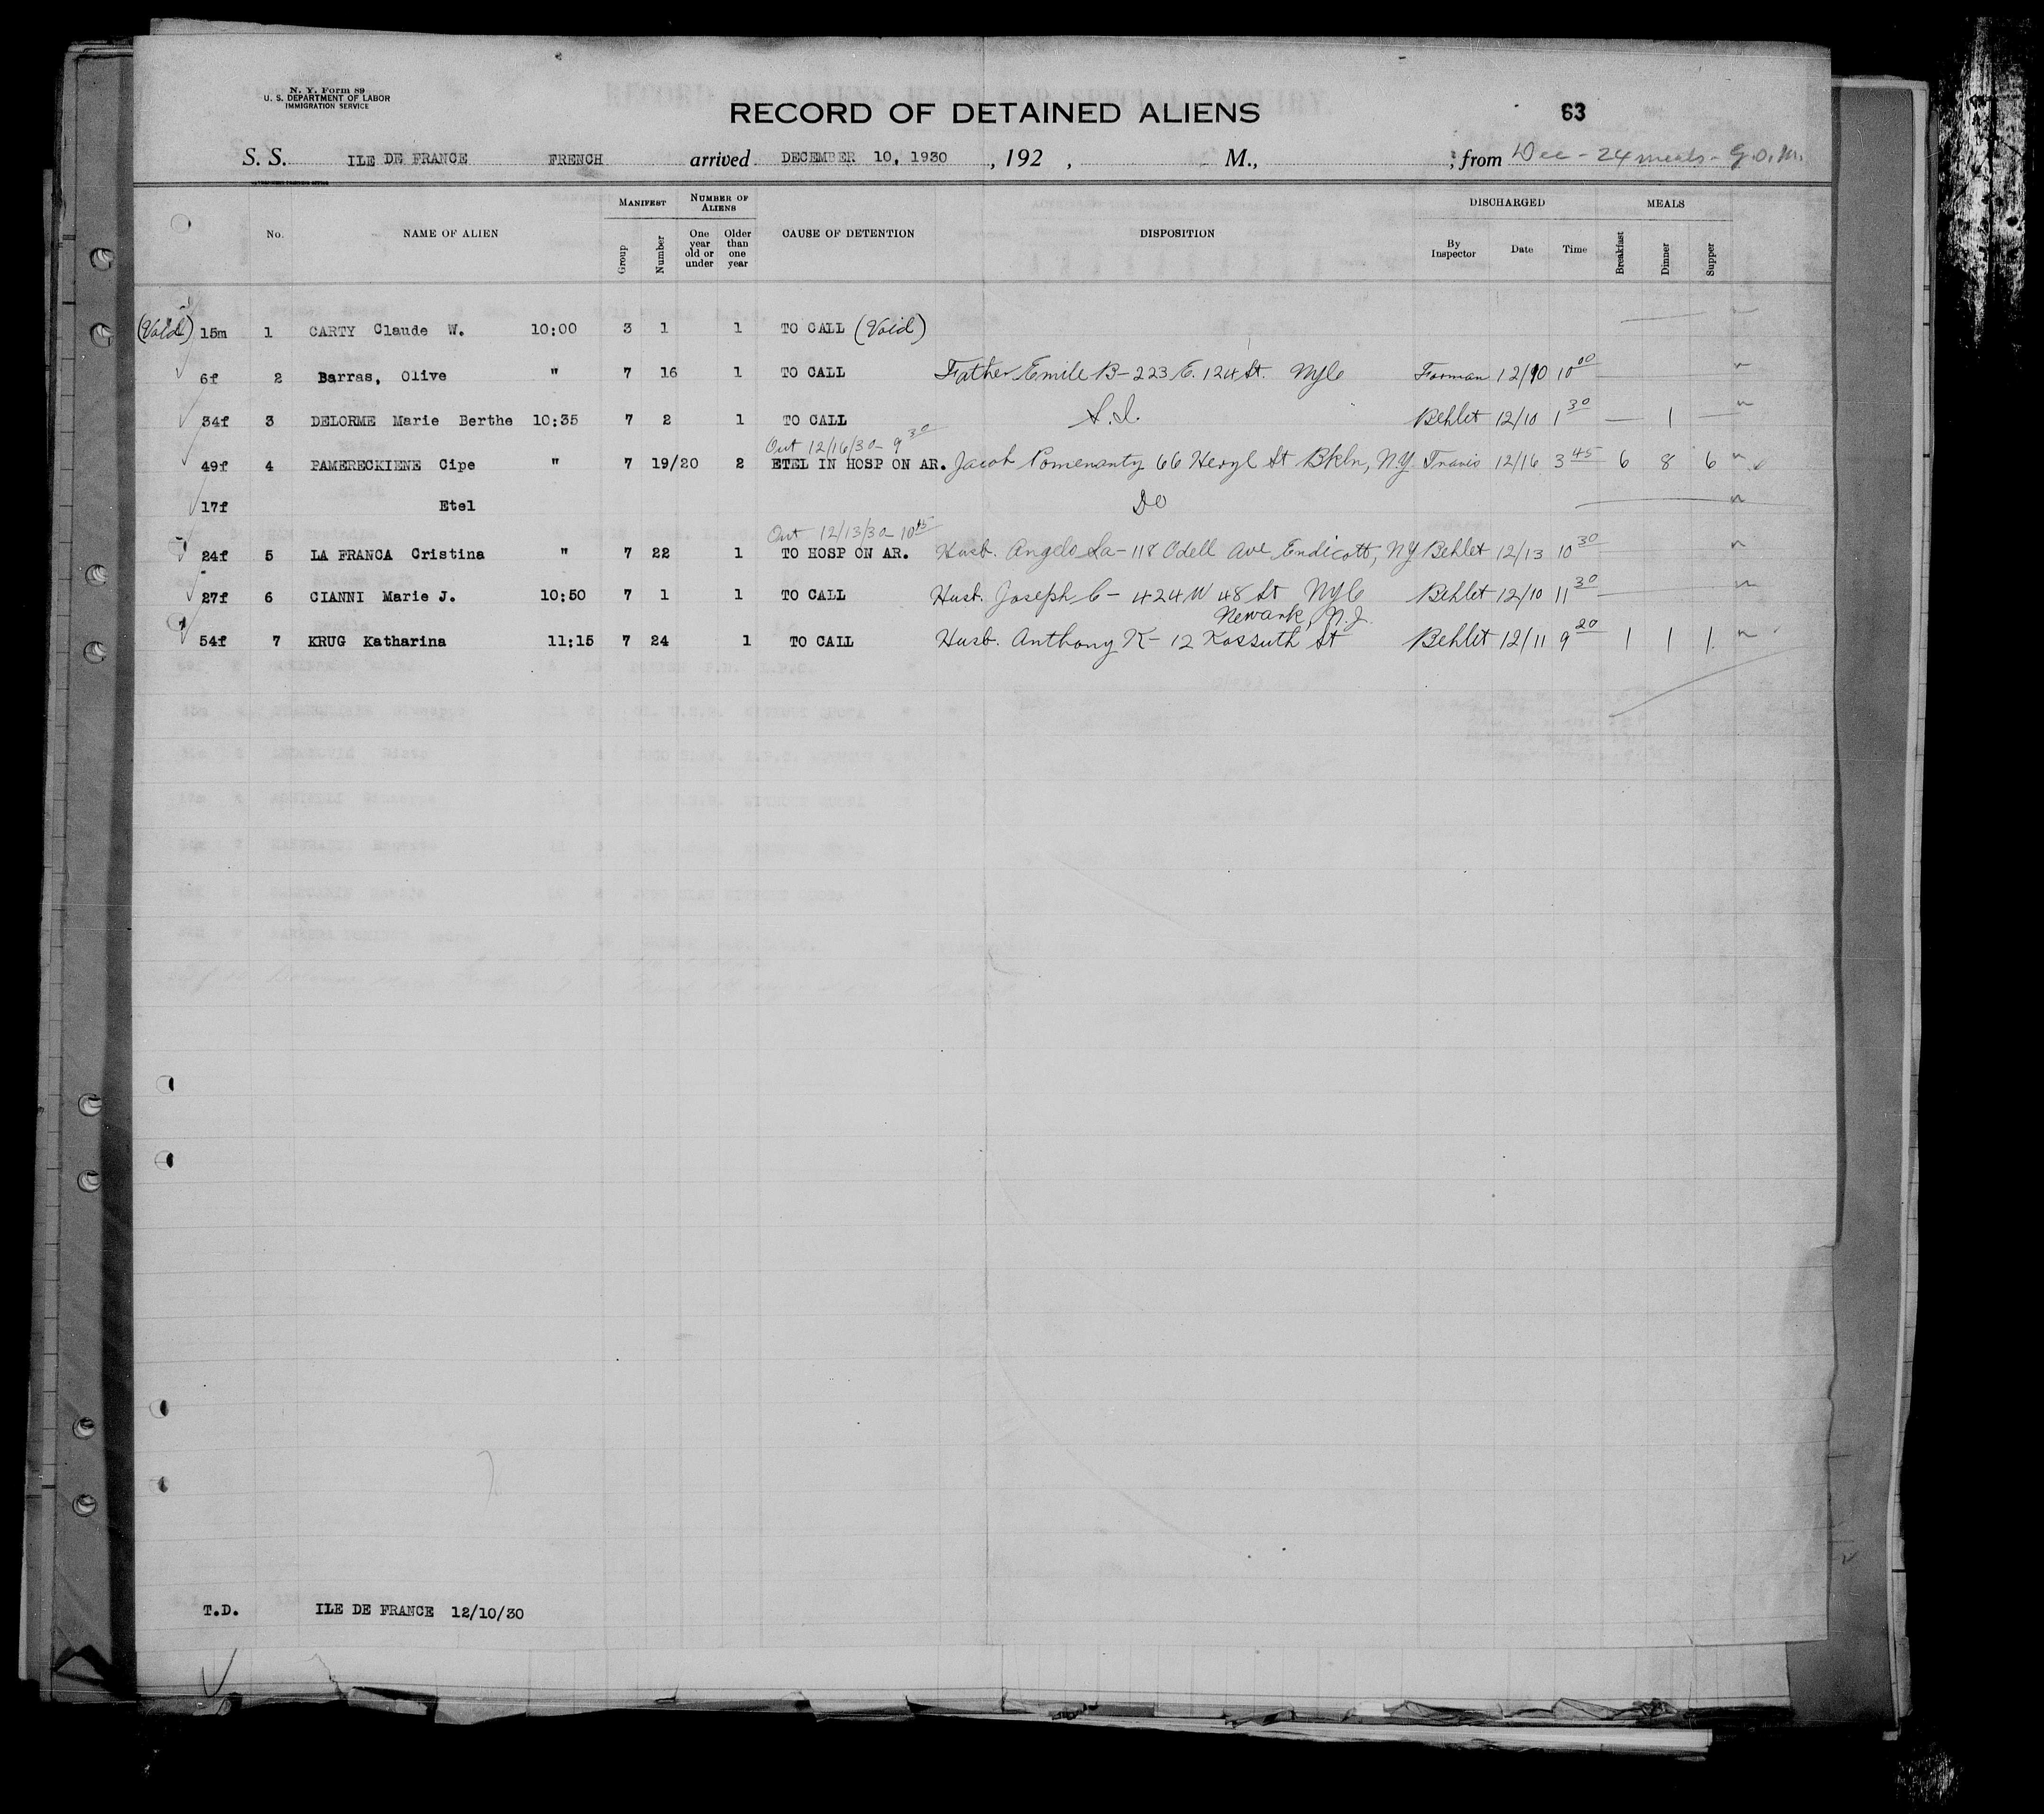 N. Y. Form 89
U. S. DEPARTMENT OF LABOR
IMMIGRATION SERVICE
RECORD OF DETAINED ALIENS 63
S. S. ILE DE FRANCE FRENCH arrived DECEMBER 10, 1930, 192 , M., ; from Dec - 24 meals - G.O.M.
No. NAME OF ALIEN MANIFEST Group Number NUMBER OF ALIENS One year old or under Older than one year CAUSE OF DETENTION DISPOSITION DISCHARGED By Inspector Date Time MEALS Breakfast Dinner Supper
(Void) 15m 1 CARTY Claude W. 10:00 3 1 1 TO CALL (Void)
6f 2 Barras, Olive " 7 16 1 TO CALL Father Emile B- 223 E. 124 St. NYC Forman 12/10 10 00
34f 3 DELORME Marie Berthe 10:35 7 2 1 TO CALL S.I. Behlet 12/10 1 30 — 1 —
Out 12/16/30 - 9 30
49f 4 PAMERECKIENE Cipe " 7 19/20 2 ETEL IN HOSP ON AR. Jacob Pomeranty 66 Herzl St Bkln, N.Y. Travis 12/16 3 45 6 8 6
17f Etel Do
Out 12/13/30 - 10 15
24f 5 LA FRANCA Cristina " 7 22 1 TO HOSP ON AR. Husb. Angelo La- 118 Odell Ave Endicott, NY Behlet 12/13 10 30
27f 6 CIANNI Marie J. 10:50 7 1 1 TO CALL Husb. Joseph C- 424 W 48 St NYC Behlet 12/10 11 30
Newark, N.J.
54f 7 KRUG Katharina 11:15 7 24 1 TO CALL Husb. Anthony K- 12 Kossuth St Behlet 12/11 9 20 1 1 1
T.D. ILE DE FRANCE 12/10/30